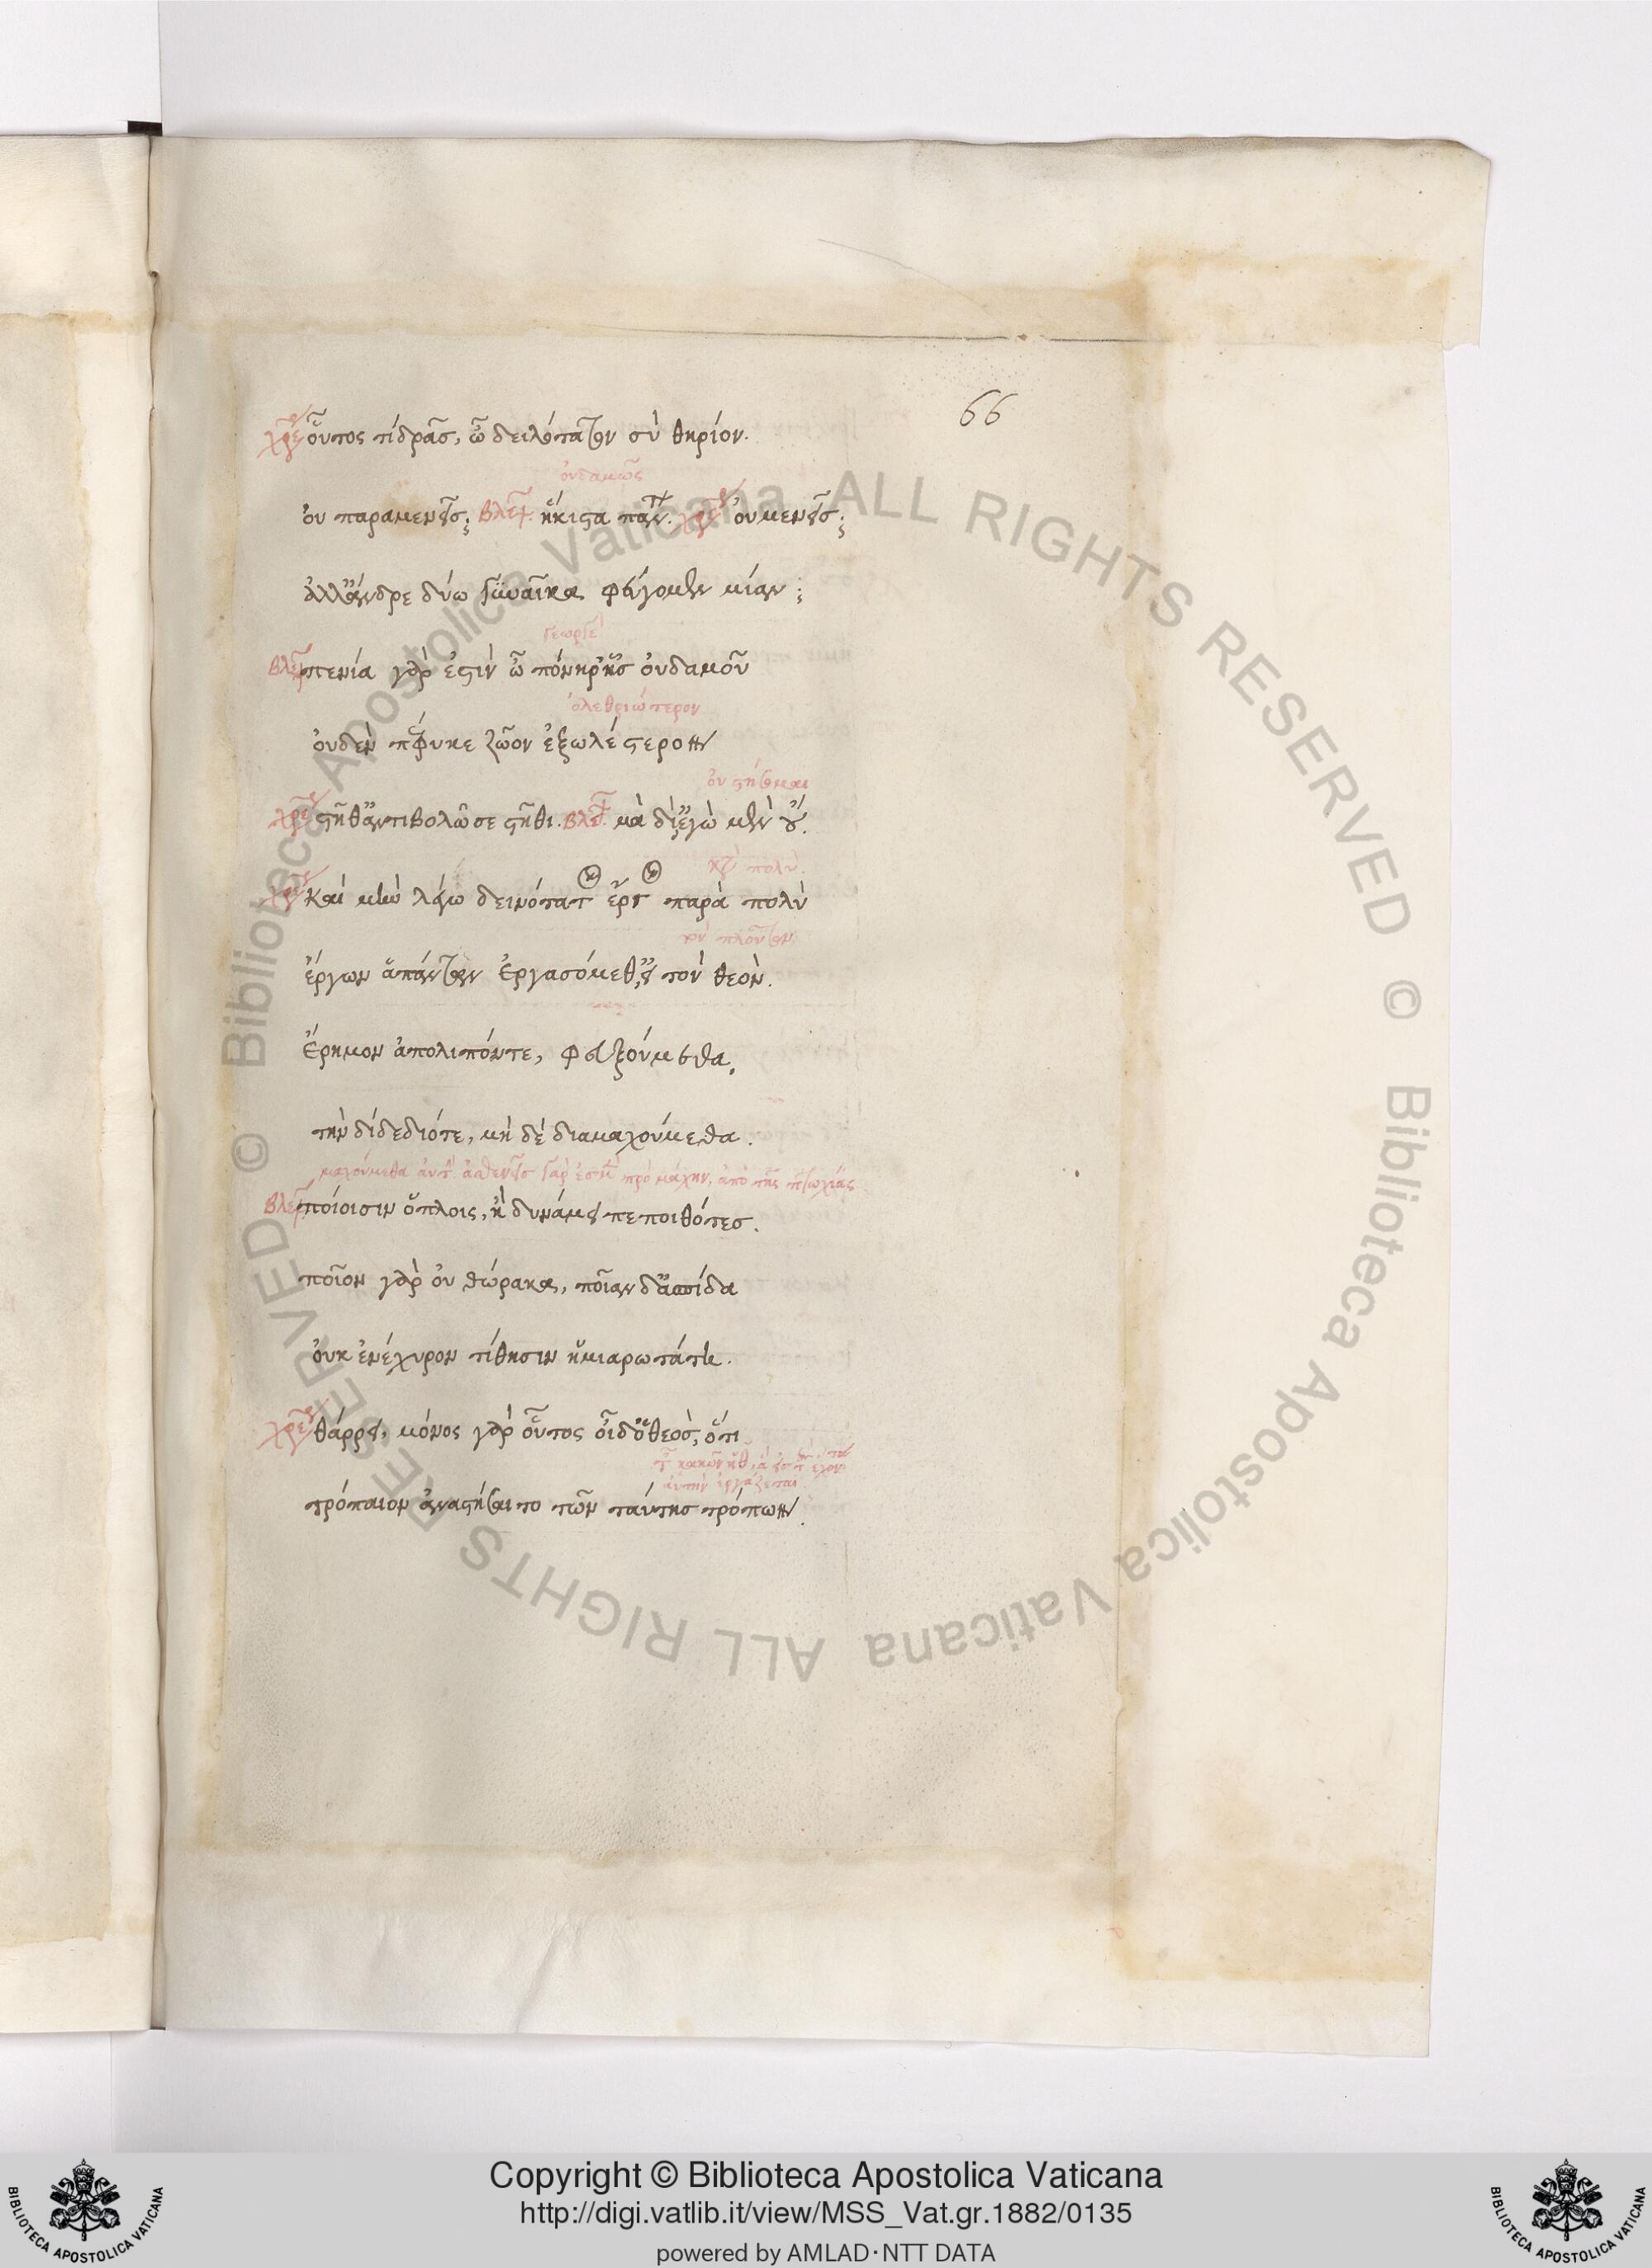 66
χρε οὗτος τί δρᾶσ, ὦ δειλότατον σὺ θηρίον.
οὐδαμῶς
οὐ παραμενεῖσ; βλεψ. ἥκιστα πάντ. χρε οὐ μενεῖσ;
ἀλλ' ἄνδρε δύω γυναῖκα φεύγομεν μίαν;
γεωργὲ
βλεψ πενία γάρ ἐστιν ὦ πόνηρ' ἧσ οὐδαμοῦ
ὀλεθριώτερον
οὐδὲν πέφυκε ζῶον ἐξωλέστερον
οὐ στήσομαι
χρε στῆθ' ἀντιβολῶ σε στῆθι. βλεψ. μὰ δί' ἐγὼ μὲν οὔ.
κατὰ πολύ.
χρε καὶ μὴν λέγω δεινότατον ἔργον παρὰ πολὺ
τὸν πλοῦτον
ἔργων ἁπάντων ἐργασόμεθ', εἰ τὸν θεὸν.
ἔρημον ἀπολιπόντε, φευξούμεσθα,
τηνδί δεδιότε, μὴ δὲ διαμαχούμεθα.
μαχούμεθα ἀσθενεῖσ γάρ ἐσμεν πρὸ μάχην, ἀπὸ τῆς πτωχίας
βλεψ ποίοισιν ὅπλοις, ἢ δυνάμει πεποιθότεσ.
ποῖον γὰρ οὐ θώρακα, ποῖαν δ' ἀσπίδα
οὐκ ἐνέχυρον τίθησιν ἡ μιαρωτάτη.
χρε θάρρει, μόνος γὰρ οὗτος οἶδ' ὁ θεὸσ, ὅτι
αὐτὴν ἐργάζεται
τρόπαιον ἀναστήσαιτο τῶν ταύτησ τρόπων.
ALL RIGHTS RESERVED © Biblioteca Apostolica Vaticana ALL RIGHTS RESERVED © Biblioteca Apostolica Vaticana
Copyright © Biblioteca Apostolica Vaticana
http://digi.vatlib.it/view/MSS_Vat.gr.1882/0135
powered by AMLAD·NTT DATA
BIBLIOTECA APOSTOLICA VATICANA
BIBLIOTECA APOSTOLICA VATICANA